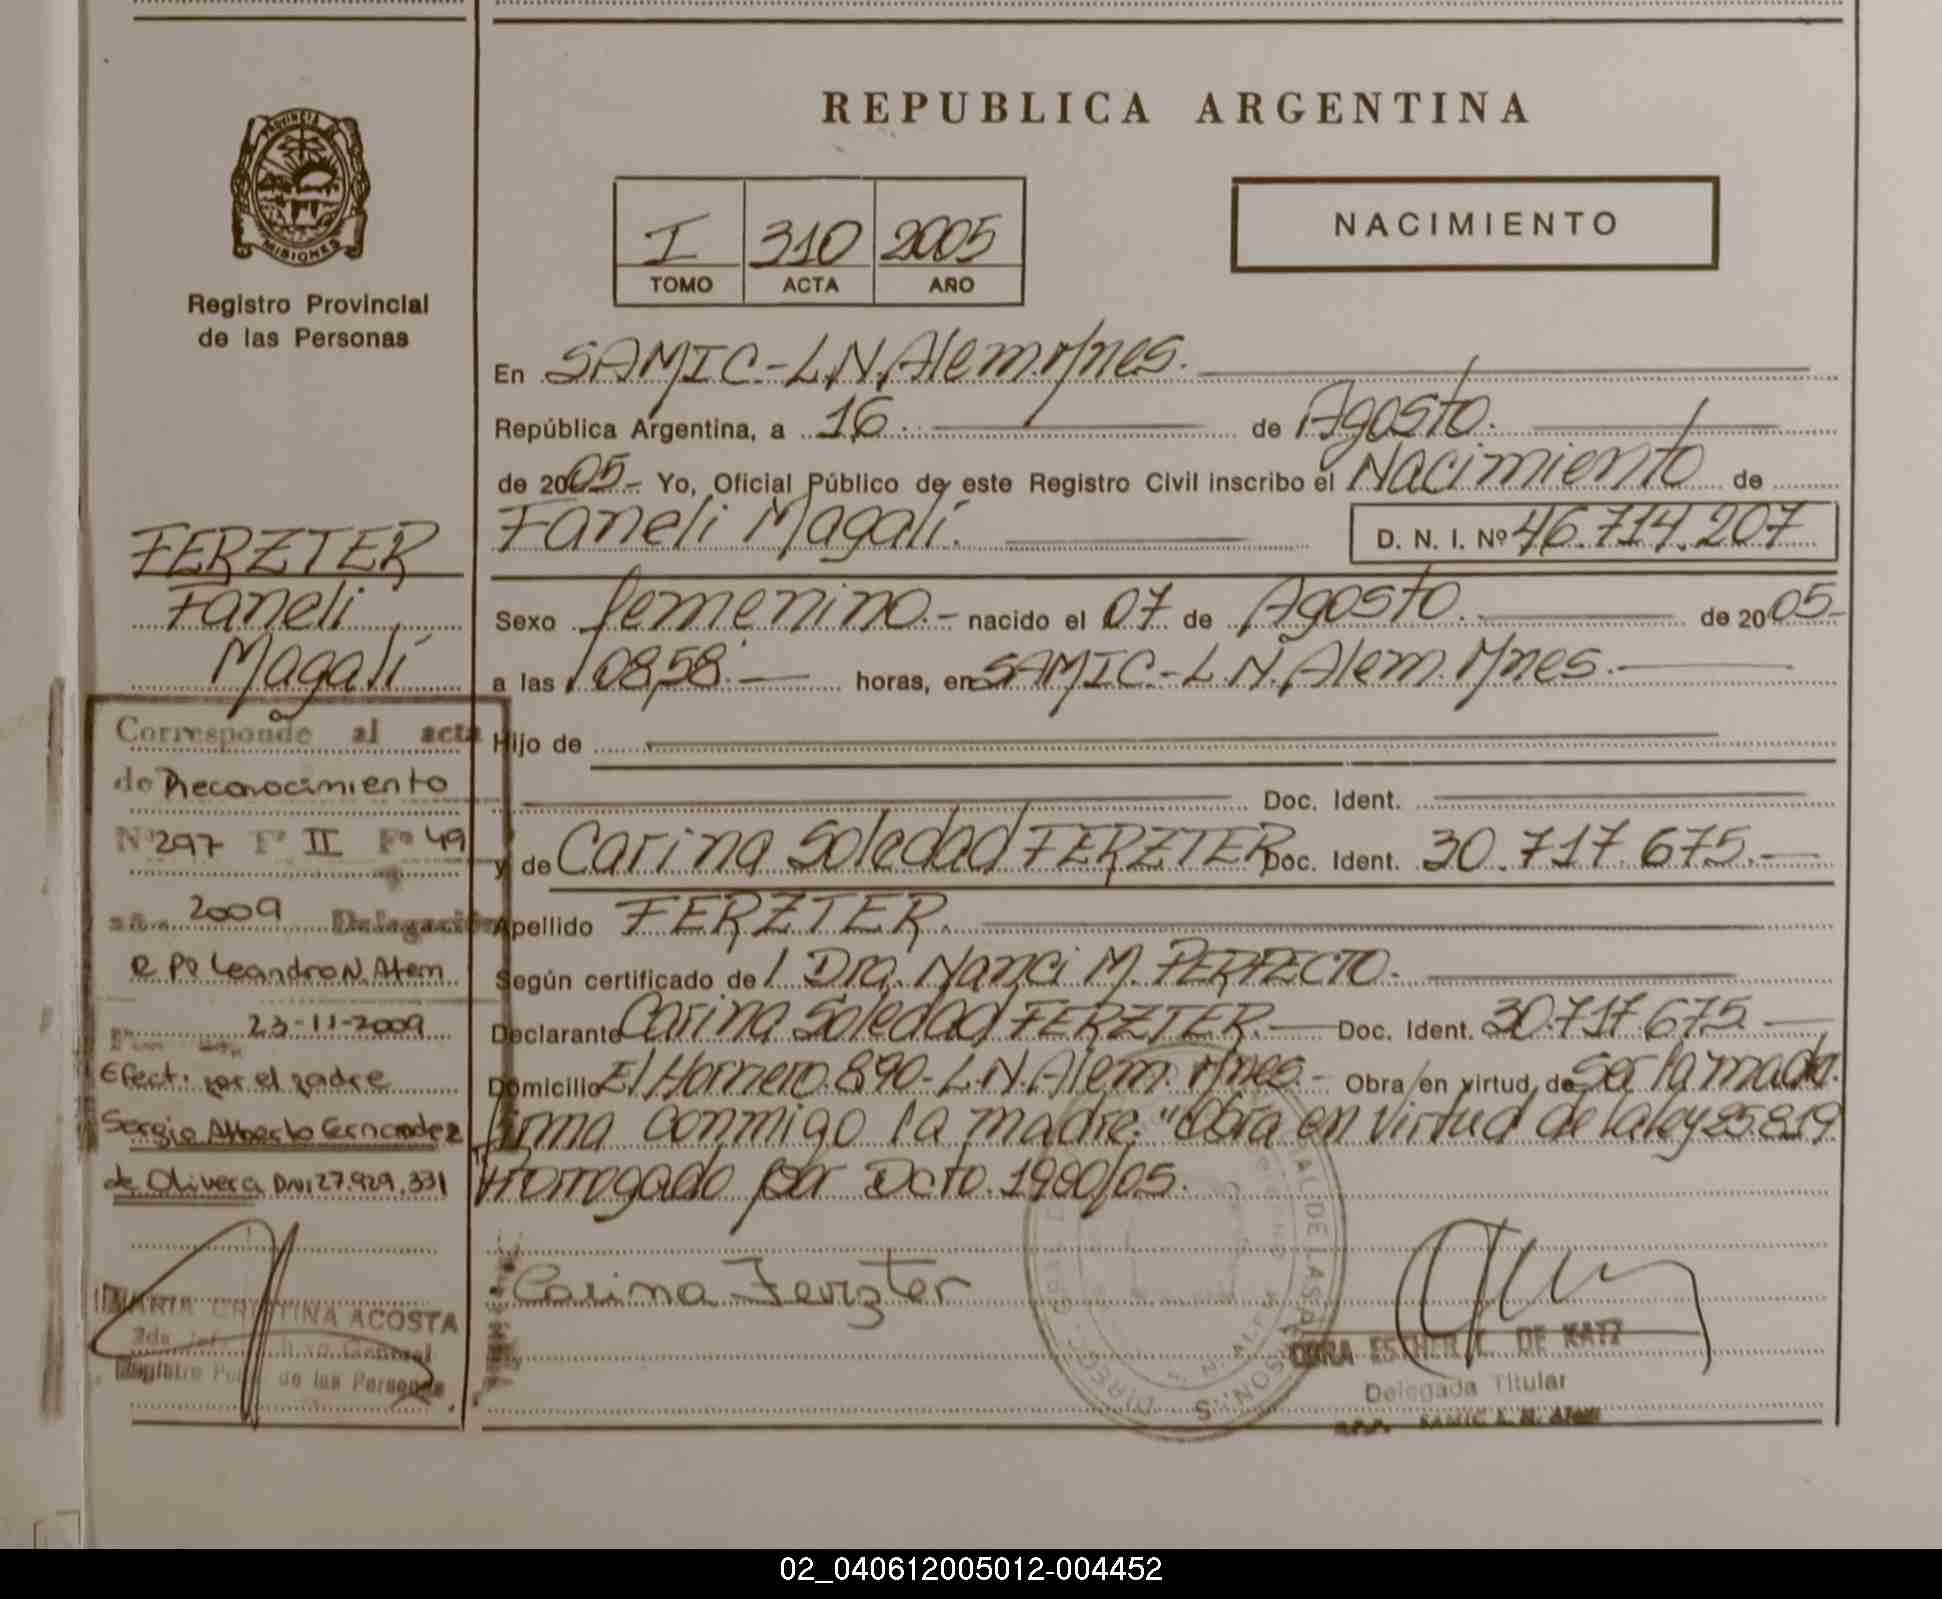 REPUBLICA ARGENTINA
PROVINCIA DE
MISIONES
Registro Provincial
de las Personas
I 310 2005
TOMO ACTA AÑO
NACIMIENTO
En SAMIC-L.N.Alem.Mnes.
República Argentina, a 16 de Agosto.
de 2005.- Yo, Oficial Público de este Registro Civil inscribo el Nacimiento de
Faneli Magalí. D. N. I. Nº 46.714.207
Sexo femenino.- nacido el 07 de Agosto. de 2005-
a las 08,58.- horas, en SAMIC.-L.N.Alem.Mnes.-
Hijo de
Doc. Ident.
y de Carina Soledad FERZTER Doc. Ident. 30.717.675.-
Apellido FERZTER.
Según certificado de Dra. Nanci M. PERFECTO.-
Declarante Carina Soledad FERZTER.- Doc. Ident. 30.717.675-
Domicilio El Hornero.890-L.N.Alem.Mnes.- Obra en virtud de Ser la madre.
firma conmigo la madre. "Obra en virtud de la ley 25.819
Prorrogado por Dcto. 1900/05.
Carina Ferzter
ESTHER DE KATZ
Delegada Titular
SAMIC L. N. Alem
FERZTER
Faneli
Magalí
Corresponde al acta
de Reconocimiento
Nº 297 Tº II Fº 49
año 2009 Delegación
R.P. Leandro N. Alem
23-11-2009
Efect. por el padre
Sergio Alberto Fernandez
de Olivera DNI 27.929.331
MARIA CRISTINA ACOSTA
2da. General
Registro de las Personas
02_040612005012-004452